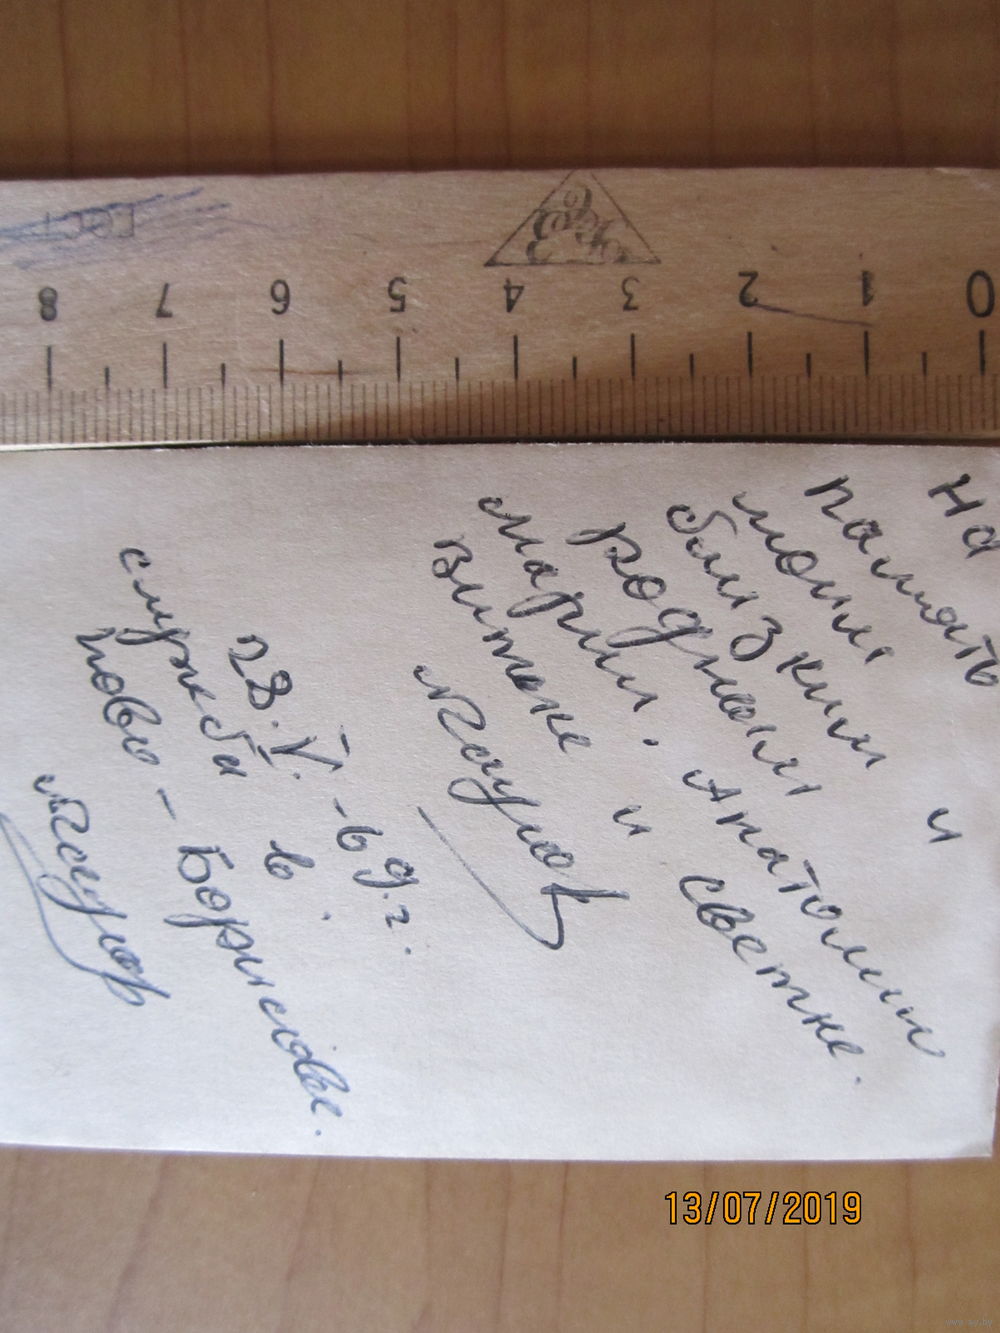 На память
моим близким и
родным Анатолию
Марии.
Витьке и Светке.
28.V.-69г.
служба в
Ново-Борисове.
0 1 2 3 4 5 6 7 8
ГОСТ
13/07/2019
www.ay.by